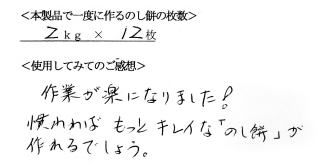 ＜本製品で一度に作るのし餅の枚数＞
2kg × 12枚
＜使用してみてのご感想＞
作業が楽になりました!
慣れればもっとキレイな「のし餅」が
作れるでしょう。